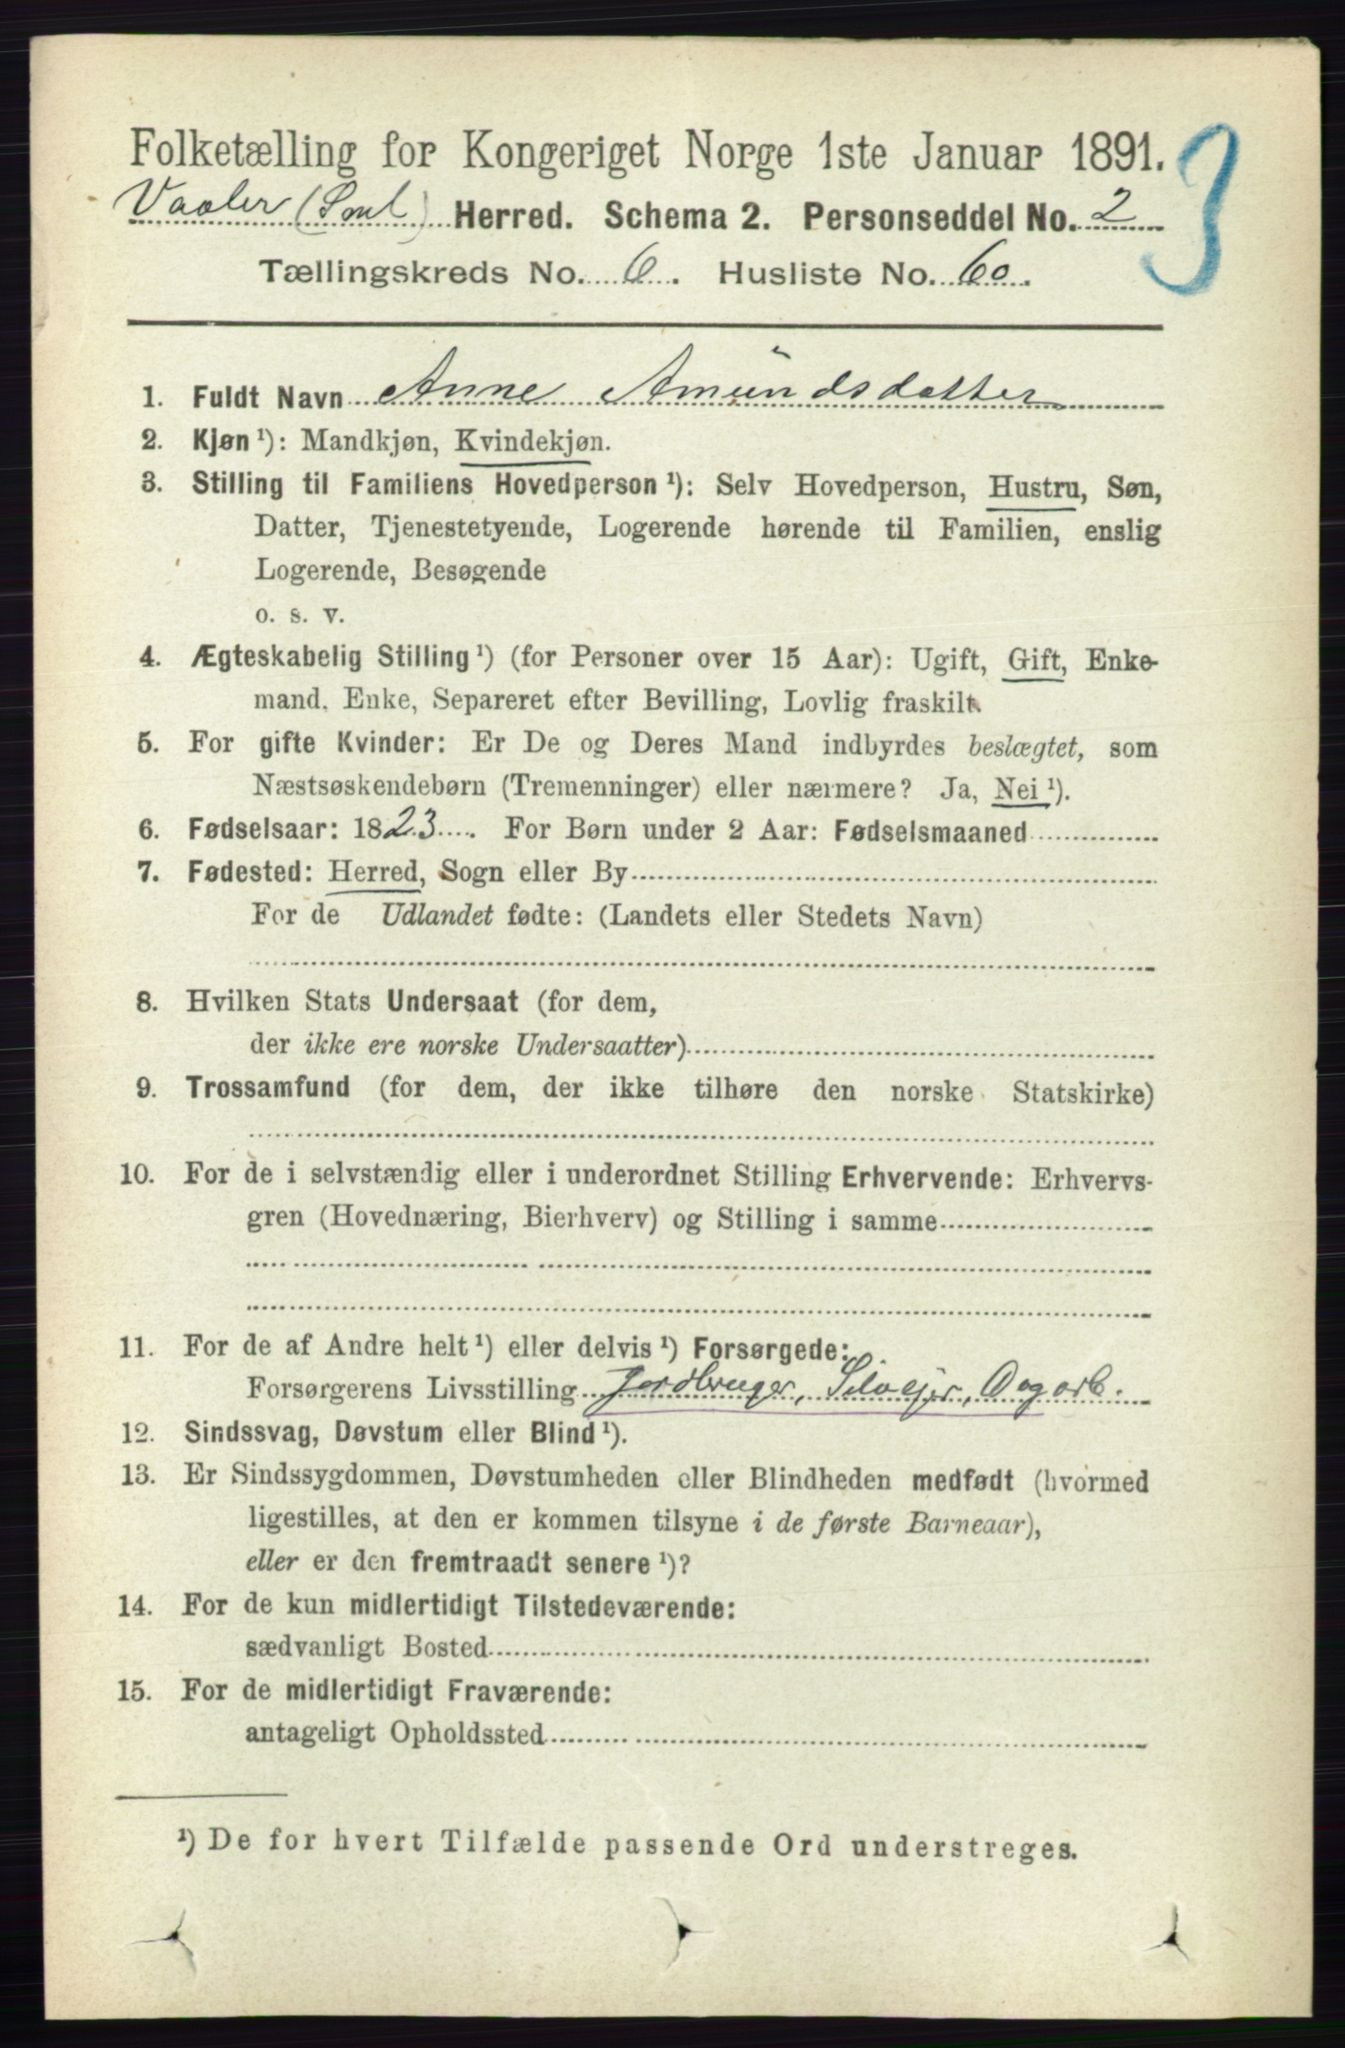 Folketælling for Kongeriget Norge 1ste Januar 1891.
3
Vaaler (Sml) Herred. Schema 2. Personseddel No. 2
Tællingskreds No. 6. Husliste No. 60.
1. Fuldt Navn Anne Amundsdatter
2. Kjøn ¹): Mandkjøn, Kvindekjøn.
3. Stilling til Familiens Hovedperson ¹): Selv Hovedperson, Hustru, Søn,
Datter, Tjenestetyende, Logerende hørende til Familien, enslig
Logerende, Besøgende
o. s. v.
4. Ægteskabelig Stilling ¹) (for Personer over 15 Aar): Ugift, Gift, Enke-
mand, Enke, Separeret efter Bevilling, Lovlig fraskilt.
5. For gifte Kvinder: Er De og Deres Mand indbyrdes beslægtet, som
Næstsøskendebørn (Tremenninger) eller nærmere? Ja, Nei ¹).
6. Fødselsaar: 1823. For Børn under 2 Aar: Fødselsmaaned
7. Fødested: Herred, Sogn eller By
For de Udlandet fødte: (Landets eller Stedets Navn)
8. Hvilken Stats Undersaat (for dem,
der ikke ere norske Undersaatter)
9. Trossamfund (for dem, der ikke tilhøre den norske Statskirke)
10. For de i selvstændig eller i underordnet Stilling Erhvervende: Erhvervs-
gren (Hovednæring, Bierhverv) og Stilling i samme
11. For de af Andre helt ¹) eller delvis ¹) Forsørgede:
Forsørgerens Livsstilling Jordbruger, Selvejer, Dagarb.
12. Sindssvag, Døvstum eller Blind ¹).
13. Er Sindssygdommen, Døvstumheden eller Blindheden medfødt (hvormed
ligestilles, at den er kommen tilsyne i de første Barneaar),
eller er den fremtraadt senere ¹)?
14. For de kun midlertidigt Tilstedeværende:
sædvanligt Bosted
15. For de midlertidigt Fraværende:
antageligt Opholdssted
¹) De for hvert Tilfælde passende Ord understreges.